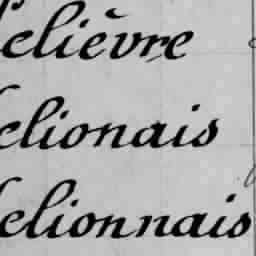 elièvre
elionais
elionnais